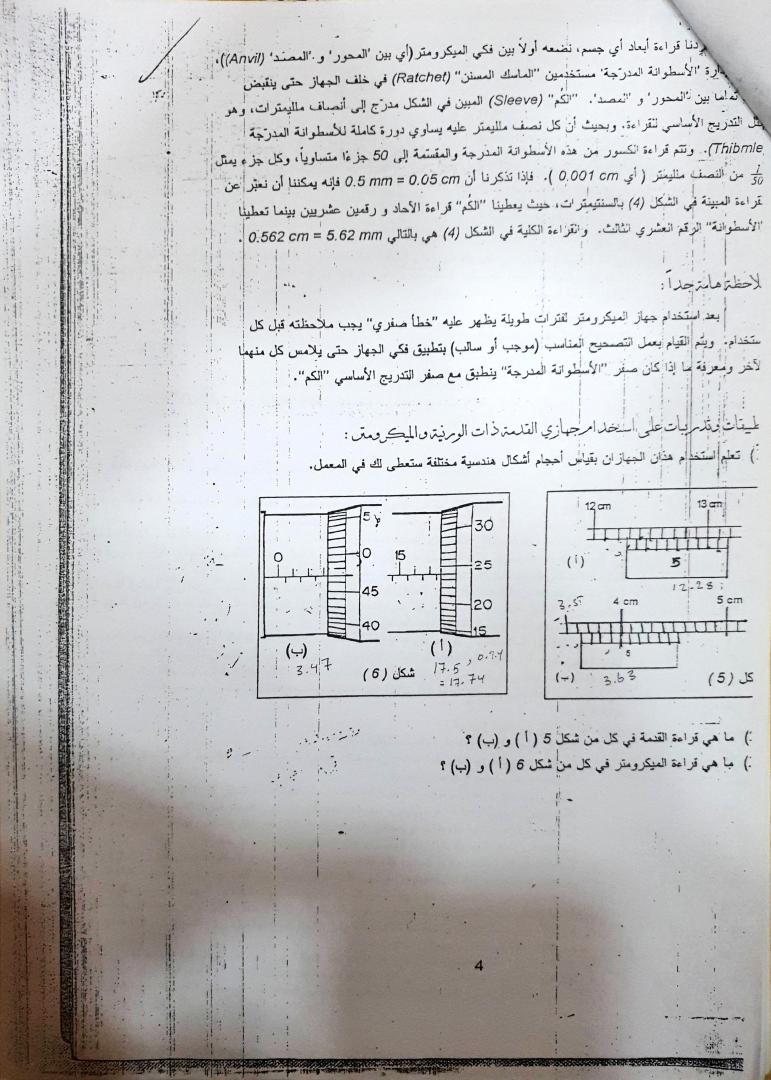 ردنا قراءة أبعاد أي جسم، نضعه أولاً بين فكي الميكرومتر(أي بين 'المحور' و 'المصد' (Anvil))،
'الأسطوانة المدرّجة' مستخدمين "الماسك المسنن" (Ratchet) في خلف الجهاز حتى ينقبض
تماما بين 'المحور' و 'المصد'. "الكُم" (Sleeve) المبين في الشكل مدرّج إلى أنصاف ملليمترات، وهو
التدريج الأساسي للقراءة. وبحيث أن كل نصف ملليمتر عليه يساوي دورة كاملة للأسطوانة المدرّجة
Thibmle). وتتم قراءة الكسور من هذه الأسطوانة المدرجة والمقسّمة إلى 50 جزءًا متساوياً، وكل جزء يمثل
1/50 من النصف ملليمتر ( أي 0.001 cm ). فإذا تذكرنا أن 0.5 mm = 0.05 cm فإنه يمكننا أن نعبّر عن
قراءة المبينة في الشكل (4) بالسنتيمترات، حيث يعطينا "الكُم" قراءة الآحاد و رقمين عشريين بينما تعطينا
الأسطوانة" الرقم العشري الثالث. والقراءة الكلية في الشكل (4) هي بالتالي 0.562 cm = 5.62 mm .
لاحظة هامة جداً :
بعد استخدام جهاز الميكرومتر لفترات طويلة يظهر عليه "خطأ صفري" يجب ملاحظته قبل كل
ستخدام. ويتم القيام بعمل التصحيح المناسب (موجب أو سالب) بتطبيق فكي الجهاز حتى يلامس كل منهما
لآخر ومعرفة ما إذا كان صفر "الأسطوانة المدرجة" ينطبق مع صفر التدريج الأساسي "الكم".
طبيقات وتدريبات على استخدام جهازي القدمة ذات الورنية والميكرومتر :
) تعلم استخدام هذان الجهازان بقياس أحجام أشكال هندسية مختلفة ستعطى لك في المعمل.
12 cm
13 cm
(أ)
5
12.28
3.5
4 cm
5 cm
5
(ب)
3.63
كل (5)
15
30
25
20
15
(أ)
17.5
= 17.74
0
5
0
45
40
(ب)
3.47
شكل (6)
) ما هي قراءة القدمة في كل من شكل 5 (أ) و (ب) ؟
) ما هي قراءة الميكرومتر في كل من شكل 6 (أ) و (ب) ؟
4